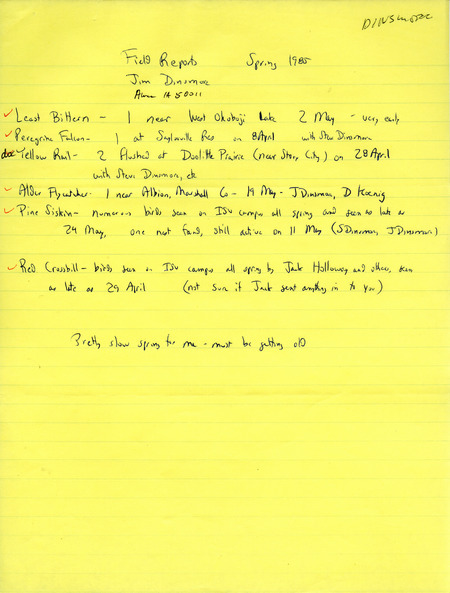 DINSMORE
Field Reports Spring 1985
Jim Dinsmore
Ames IA 50011
Least Bittern - 1 near West Okoboji Lake 2 May - very early
Peregrine Falcon - 1 at Saylorville Res on 8 April with Steve Dinsmore
doc Yellow Rail - 2 flushed at Doolittle Prairie (near Story City) on 28 April
with Steve Dinsmore, etc
Alder Flycatcher - 1 near Albion, Marshall Co - 19 May - J Dinsmore, D Koenig
Pine Siskin - numerous birds seen on ISU campus all spring and seen as late as
24 May, one nest found, still active on 11 May (S Dinsmore, J Dinsmore)
Red Crossbill - birds seen on ISU campus all spring by Jack Holloway and others, seen
as late as 29 April (not sure if Jack sent anything in to you)
Pretty slow spring for me - must be getting old